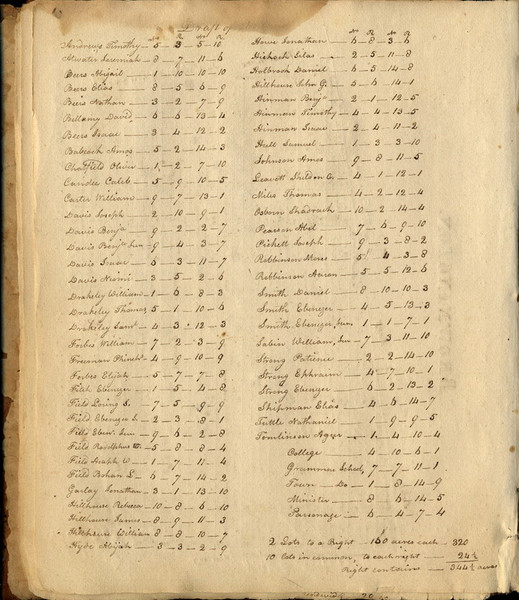 Draft of
No R No R
Andrews Timothy — 5 — 3 — 5 — 10
Atwater Jeremiah — 8 — 7 — 11 — 6
Beers Abigail — 1 — 10 — 10 — 10
Beers Elias — 8 — 5 — 6 — 9
Beers Nathan — 3 — 2 — 7 — 9
Bellamy David — 6 — 6 — 13 — 4
Beers Isaac — 3 — 4 — 12 — 2
Babcock Amos — 5 — 2 — 14 — 3
Chatfield Oliver — 1 — 2 — 7 — 10
Candee Caleb — 5 — 9 — 10 — 5
Carter William — 9 — 7 — 13 — 1
Davis Joseph — 2 — 10 — 9 — 1
Davis Benjn — 9 — 2 — 2 — 7
Davis Benjn Jun — 9 — 4 — 3 — 7
Davis Isaac — 6 — 3 — 11 — 7
Davis — 3 — 5 — 2 — 6
Drakeley William — 1 — 6 — 8 — 3
Drakeley Thomas — 5 — 1 — 10 — 6
Drakeley Saml — 4 — 3 — 12 — 3
Forbes William — 7 — 2 — 3 — 9
Freeman — 4 — 9 — 10 — 9
Forbes Elijah — 5 — 7 — 7 — 8
Fitch Ebenezer — 1 — 5 — 4 — 8
Field — 7 — 5 — 9 — 9
Field Ebenezer — 2 — 3 — 8 — 1
Field Ebenr Jun — 9 — 6 — 2 — 8
Field — 5 — 8 — 8 — 4
Field Joseph W — 1 — 7 — 11 — 4
Field Bohan L — 6 — 7 — 14 — 2
Garlay Jonathan — 3 — 1 — 13 — 10
Hillhouse Rebecca — 10 — 8 — 6 — 10
Hillhouse James — 8 — 9 — 11 — 3
Hillhouse William — 8 — 8 — 10 — 7
Hyde Abijah — 3 — 3 — 2 — 9
No R No R
Howe Jonathan — 6 — 8 — 3 — 6
Hickock Silas — 2 — 5 — 11 — 8
Holbrook Daniel — 6 — 5 — 14 — 8
Hillhouse John G. — 6 — 6 — 14 — 1
Hinman Benjn — 2 — 1 — 12 — 5
Hinman Timothy — 4 — 4 — 13 — 5
Hinman Isaac — 2 — 4 — 11 — 2
Hull Samuel — 1 — 3 — 3 — 10
Johnson Amos — 9 — 8 — 11 — 5
Leavett Sheldon Co — 4 — 1 — 12 — 1
Miles Thomas — 4 — 2 — 12 — 4
Osborn Shadrach — 10 — 2 — 14 — 4
Pearson Abel — 7 — 6 — 9 — 10
Pickett Joseph — 9 — 3 — 8 — 2
Robbinson Moses — 5 — 4 — 3 — 8
Robbinson Aaron — 5 — 5 — 12 — 6
Smith Daniel — 8 — 10 — 10 — 3
Smith Ebenezer — 4 — 5 — 13 — 3
Smith, Ebenezer, Jun — 1 — 1 — 7 — 1
Sabin William, Jun — 7 — 3 — 11 — 10
Strong Patience — 2 — 2 — 14 — 10
Strong Ephraim — 4 — 7 — 10 — 1
Strong Ebenezer — 6 — 2 — 13 — 2
Shipman Elias — 4 — 6 — 14 — 7
Tuttle Nathaniel — 1 — 9 — 9 — 5
Tomlinson Agur — 1 — 4 — 10 — 4
College — 4 — 10 — 6 — 1
Grammar School — 7 — 7 — 11 — 1
Town — Do — 1 — 8 — 14 — 9
Minister — 8 — 6 — 14 — 5
Parsonage — 6 — 4 — 7 — 4
2 Lots to a Right — 160 acres each — 320
10 lots in common, to each right — 24½
Right contains — 344½ acres